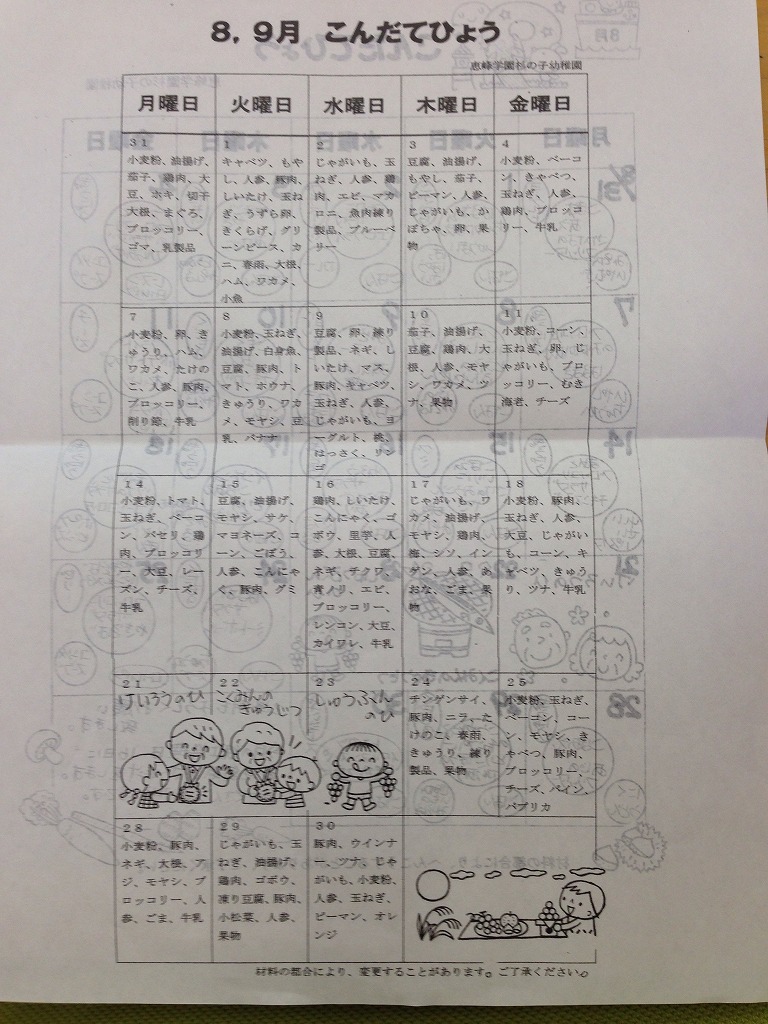 8，9月　こんだてひょう
恵峰学園杉の子幼稚園
月曜日
火曜日
水曜日
木曜日
金曜日
31
小麦粉、油揚げ、
茄子、鶏肉、大
豆、ホキ、切干
大根、まぐろ、
ブロッコリー、
ゴマ、乳製品
1
キャベツ、もや
し、人参、豚肉、
しいたけ、玉ね
ぎ、うずら卵、
きくらげ、グリ
ーンピース、カ
ニ、春雨、大根、
ハム、ワカメ、
小魚
2
じゃがいも、玉
ねぎ、人参、鶏
肉、エビ、マカ
ロニ、魚肉練り
製品、ブルーベ
リー
3
豆腐、油揚げ、
もやし、茄子、
ピーマン、人参、
じゃがいも、か
ぼちゃ、卵、果
物
4
小麦粉、ベーコ
ン、きゃべつ、
玉ねぎ、人参、
鶏肉、ブロッコ
リー、牛乳
7
小麦粉、卵、き
ゅうり、ハム、
ワカメ、たけの
こ、人参、豚肉、
ブロッコリー、
削り節、牛乳
8
小麦粉、玉ねぎ、
油揚げ、白身魚、
豆腐、豚肉、ト
マト、ホウナ、
きゅうり、ワカ
メ、モヤシ、豆
乳、バナナ
9
豆腐、卵、練り
製品、ネギ、し
いたけ、マス、
豚肉、キャベツ、
玉ねぎ、人参、
じゃがいも、ヨ
ーグルト、桃、
はっさく、リン
ゴ
10
茄子、油揚げ、
豆腐、鶏肉、大
根、人参、モヤ
シ、ワカメ、ツ
ナ、果物
11
小麦粉、コーン、
玉ねぎ、卵、じ
ゃがいも、ブロ
ッコリー、むき
海老、チーズ
14
小麦粉、トマト、
玉ねぎ、ベーコ
ン、パセリ、鶏
肉、ブロッコリ
ー、大豆、レー
ズン、チーズ、
牛乳
15
豆腐、油揚げ、
モヤシ、サケ、
マヨネーズ、コ
ーン、ごぼう、
人参、こんにゃ
く、豚肉、グミ
16
鶏肉、しいたけ、
こんにゃく、ゴ
ボウ、里芋、人
参、大根、豆腐、
ネギ、チクワ、
青ノリ、エビ、
ブロッコリー、
レンコン、大豆、
カイワレ、牛乳
17
じゃがいも、ワ
カメ、油揚げ、
モヤシ、鶏肉、
梅、シソ、イン
ゲン、人参、あ
おな、ごま、果
物
18
小麦粉、豚肉、
玉ねぎ、人参、
大豆、じゃがい
も、コーン、キ
ャベツ、きゅう
り、ツナ、牛乳
21
けいろうのひ
22
こくみんの
きゅうじつ
23
しゅうぶん
のひ
24
チンゲンサイ、
豚肉、ニラ、た
けのこ、春雨、
きゅうり、練り
製品、果物
25
小麦粉、玉ねぎ、
ベーコン、コー
ン、モヤシ、き
ゃべつ、豚肉、
ブロッコリー、
チーズ、パイン、
パプリカ
28
小麦粉、豚肉、
ネギ、大根、ア
ジ、モヤシ、ブ
ロッコリー、人
参、ごま、牛乳
29
じゃがいも、玉
ねぎ、油揚げ、
鶏肉、ゴボウ、
凍り豆腐、豚肉、
小松菜、人参、
果物
30
豚肉、ウインナ
ー、ツナ、じゃ
がいも、小麦粉、
人参、玉ねぎ、
ピーマン、オレ
ンジ
材料の都合により、変更することがあります。ご了承ください。